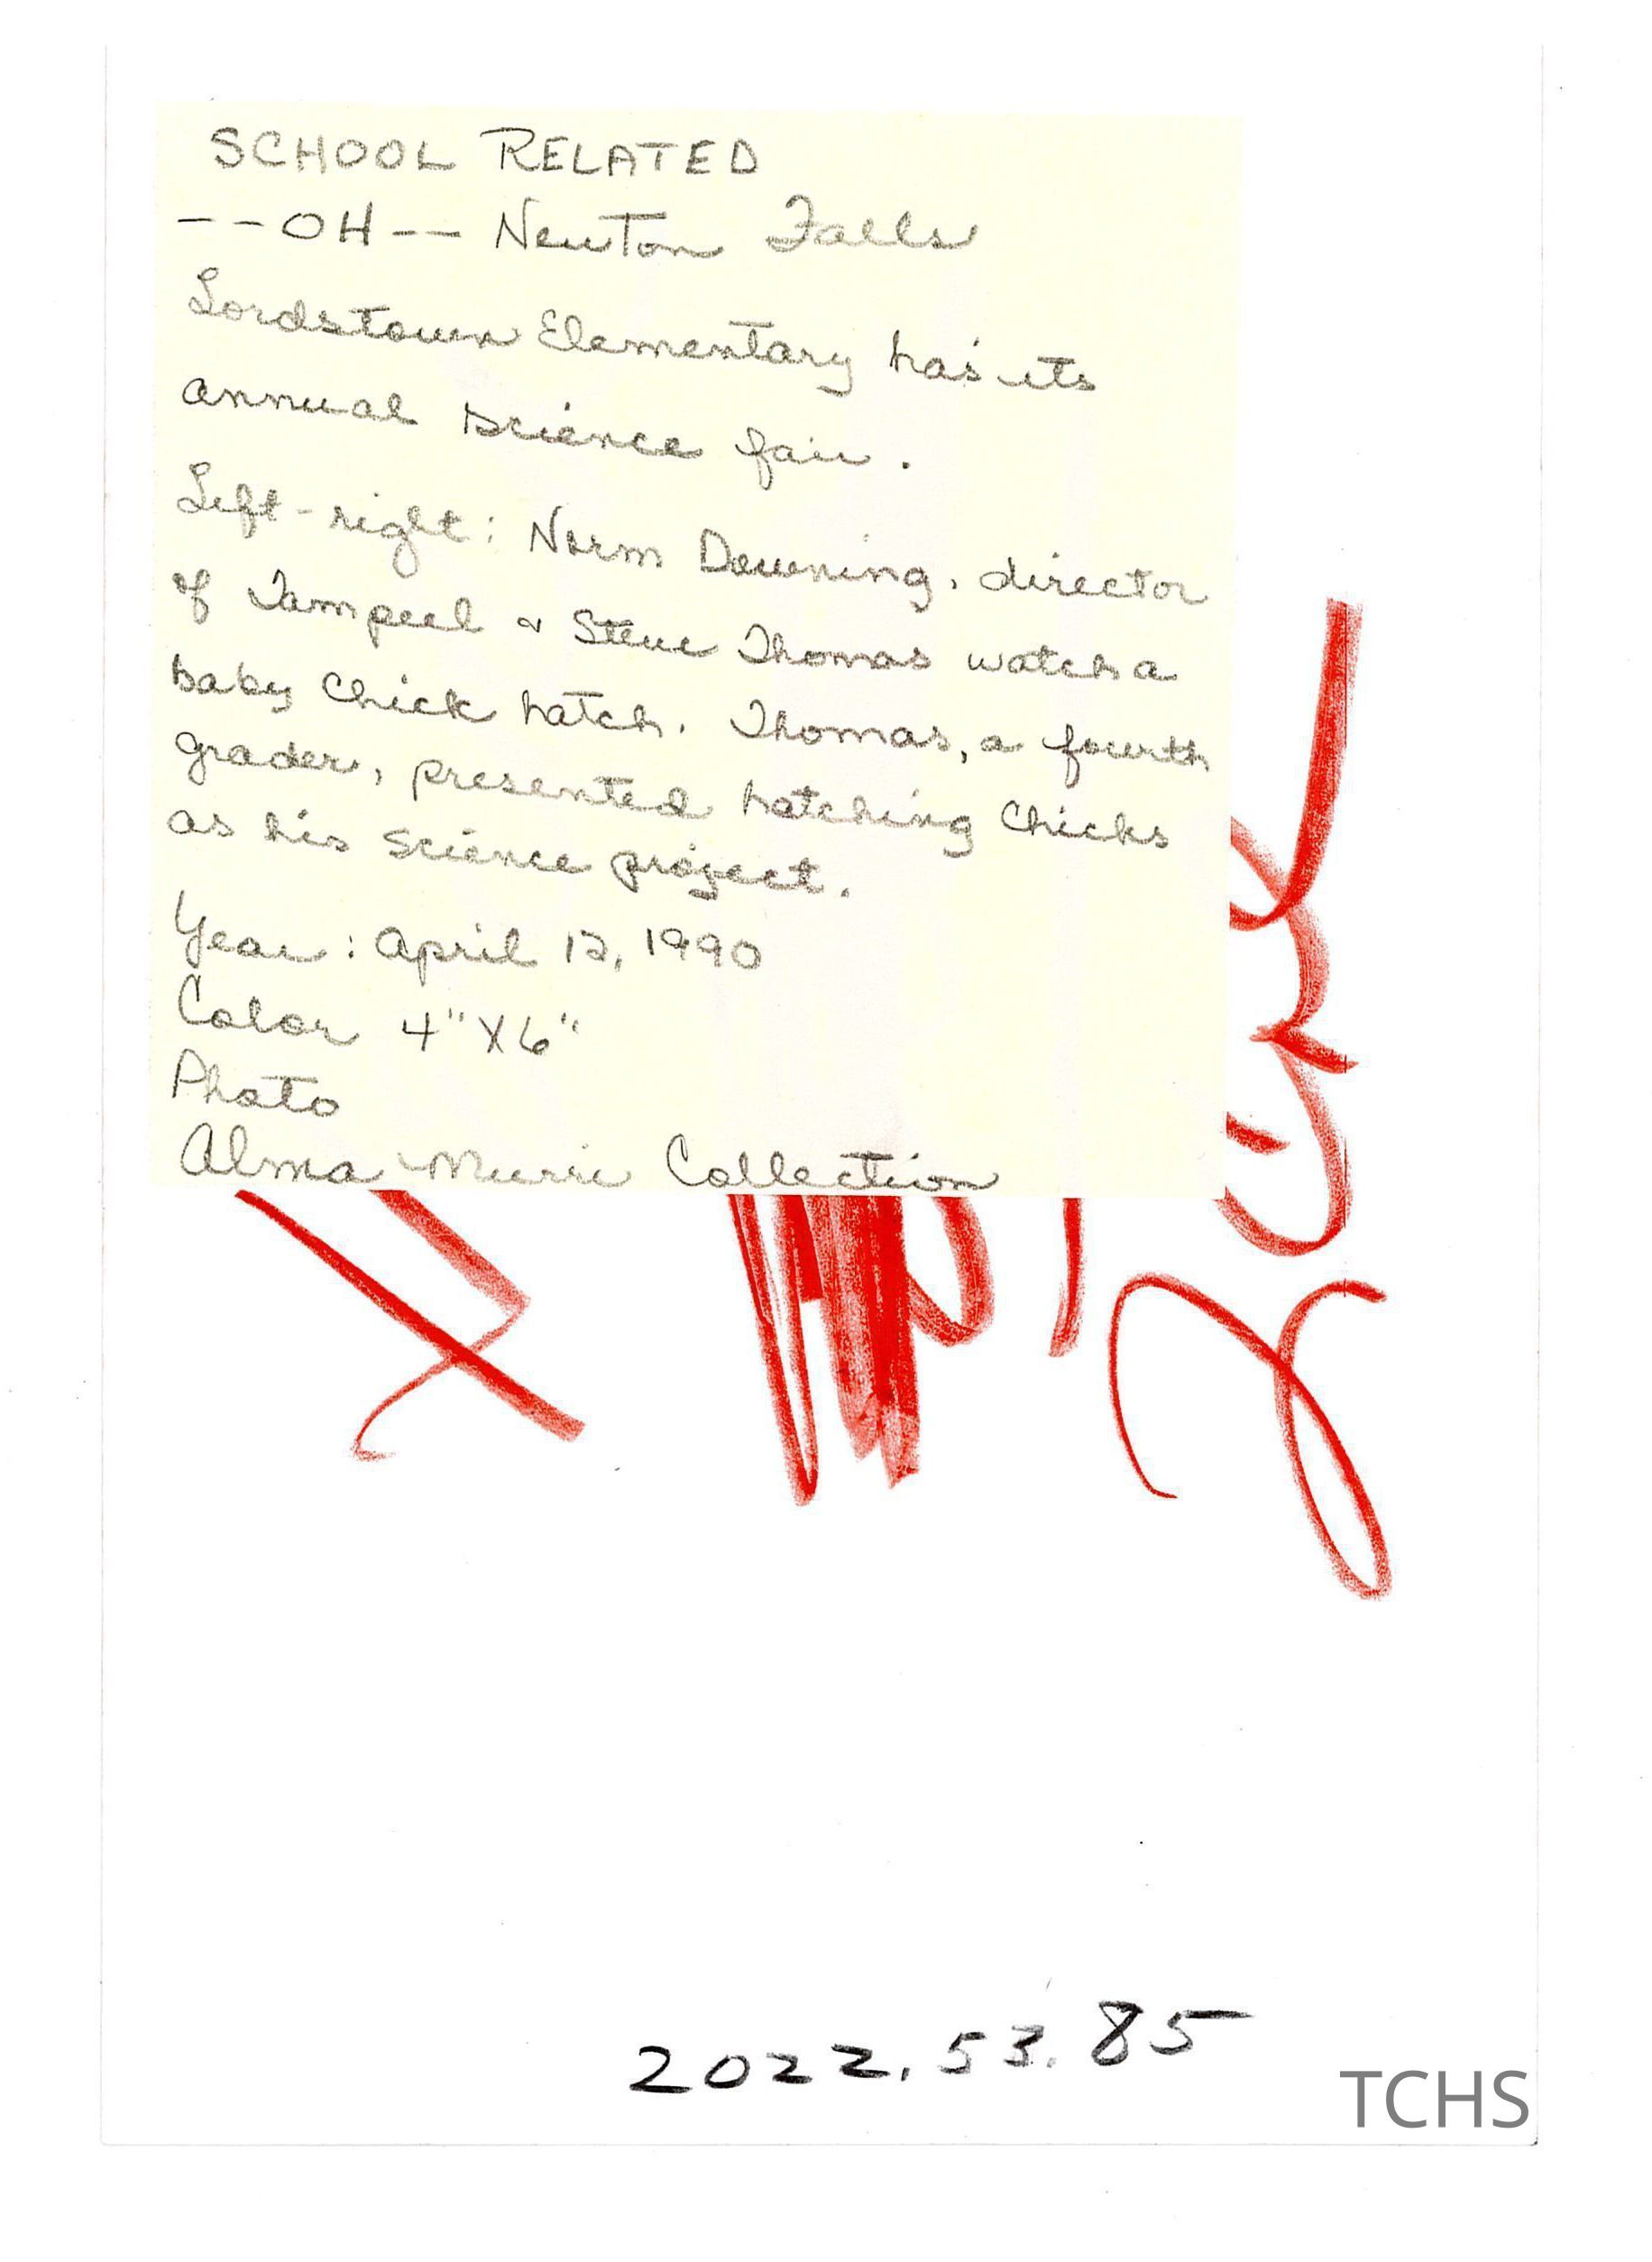 SCHOOL RELATED
--OH-- Newton Falls
Lordstown Elementary has its
annual science fair.
Left-right: Norm Downing, director
of Tampeel & Steve Thomas watch a
baby chick hatch. Thomas, a fourth
grader, presented hatching chicks
as his science project.
Year: April 12, 1990
Color 4" X 6"
Photo
Alma Murri Collection
2022.53.85
TCHS